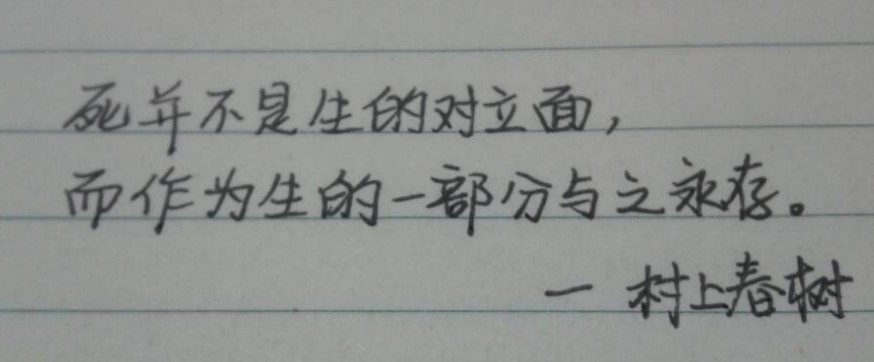 死并不是生的对立面，
而作为生的一部分与之永存。
一 村上春树